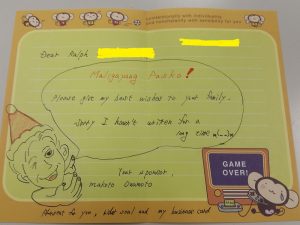 Dear Ralph
Maligayang Pasko!
Please give my best wishes to your family.
Sorry I haven't written for a
long time m(--)m
Your sponsor,
Makoto Okamoto
GAME
OVER!
Present to you, and my business card